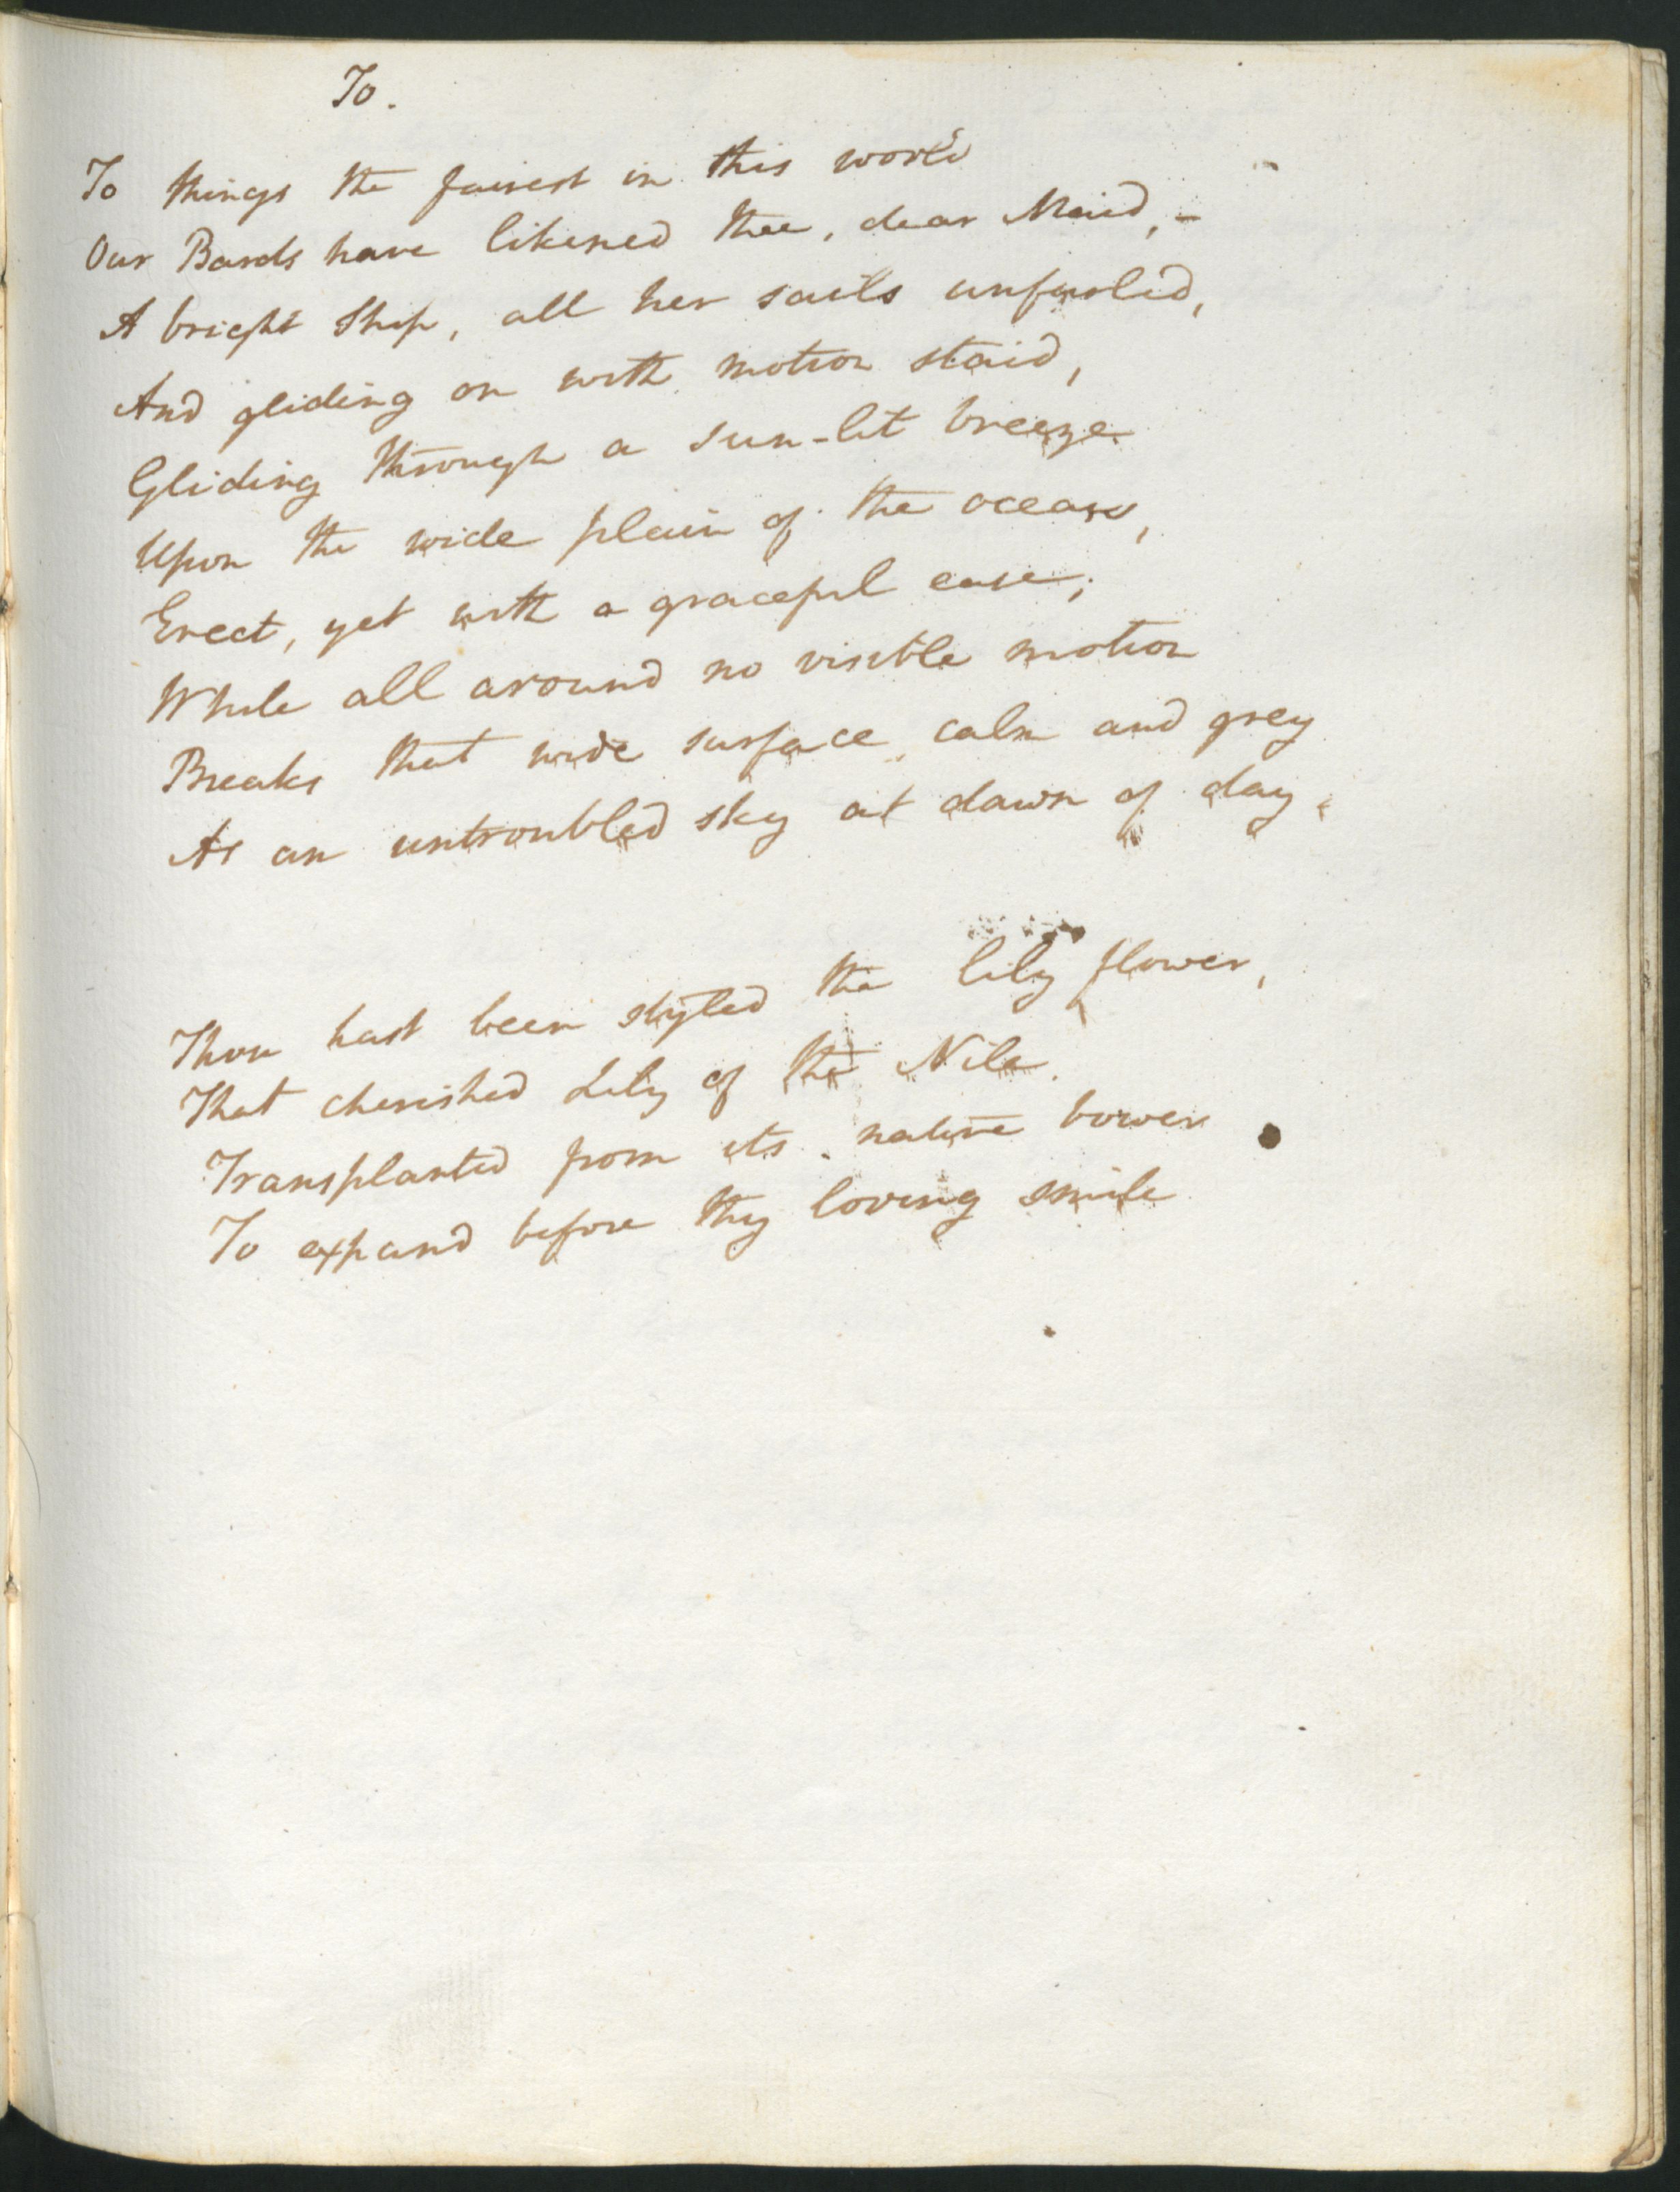 To.
To things the fairest in this world
Our Bards have likened thee, dear Maid, -
A bright Ship, all her sails unfurled,
And gliding on with motion staid,
Gliding through a sun-lit breeze
Upon the wide plain of the ocean,
Erect, yet with a graceful ease;
While all around no visible motion
Breaks that wide surface, calm and grey
As an untroubled sky at dawn of day.
Thou hast been styled the lily flower,
That cherished Lily of the Nile.
Transplanted from its native bower
To expand before thy loving smile